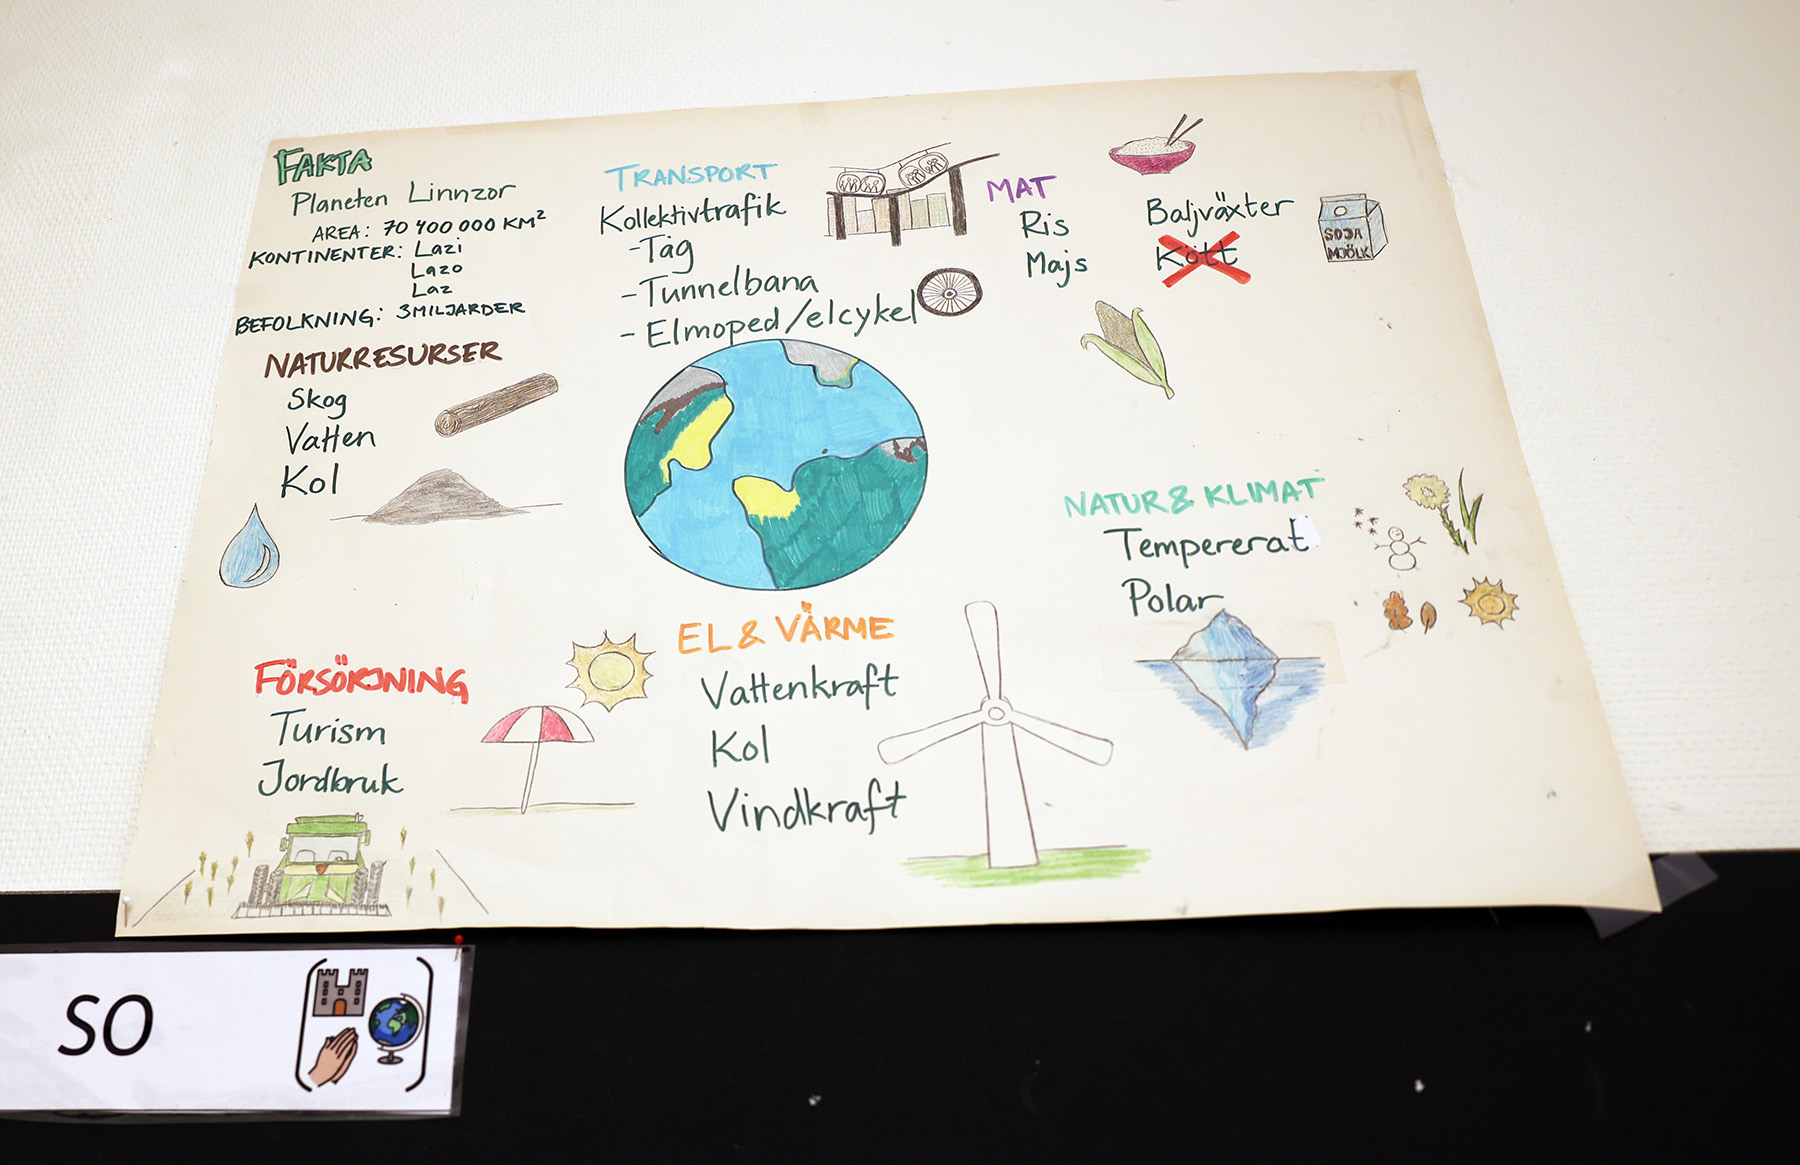 FAKTA
Planeten Linnzor
AREA: 70 400 000 KM²
KONTINENTER: Lazi
Lazo
Laz
BEFOLKNING: 3MILJARDER
NATURRESURSER
Skog
Vatten
Kol
TRANSPORT
Kollektivtrafik
-Tåg
-Tunnelbana
- Elmoped/elcykel
MAT
Ris
Majs
Baljväxter
Kött
SOJA
MJÖLK
NATUR & KLIMAT
Tempererat
Polar
FÖRSÖRJNING
Turism
Jordbruk
EL & VÄRME
Vattenkraft
Kol
Vindkraft
SO